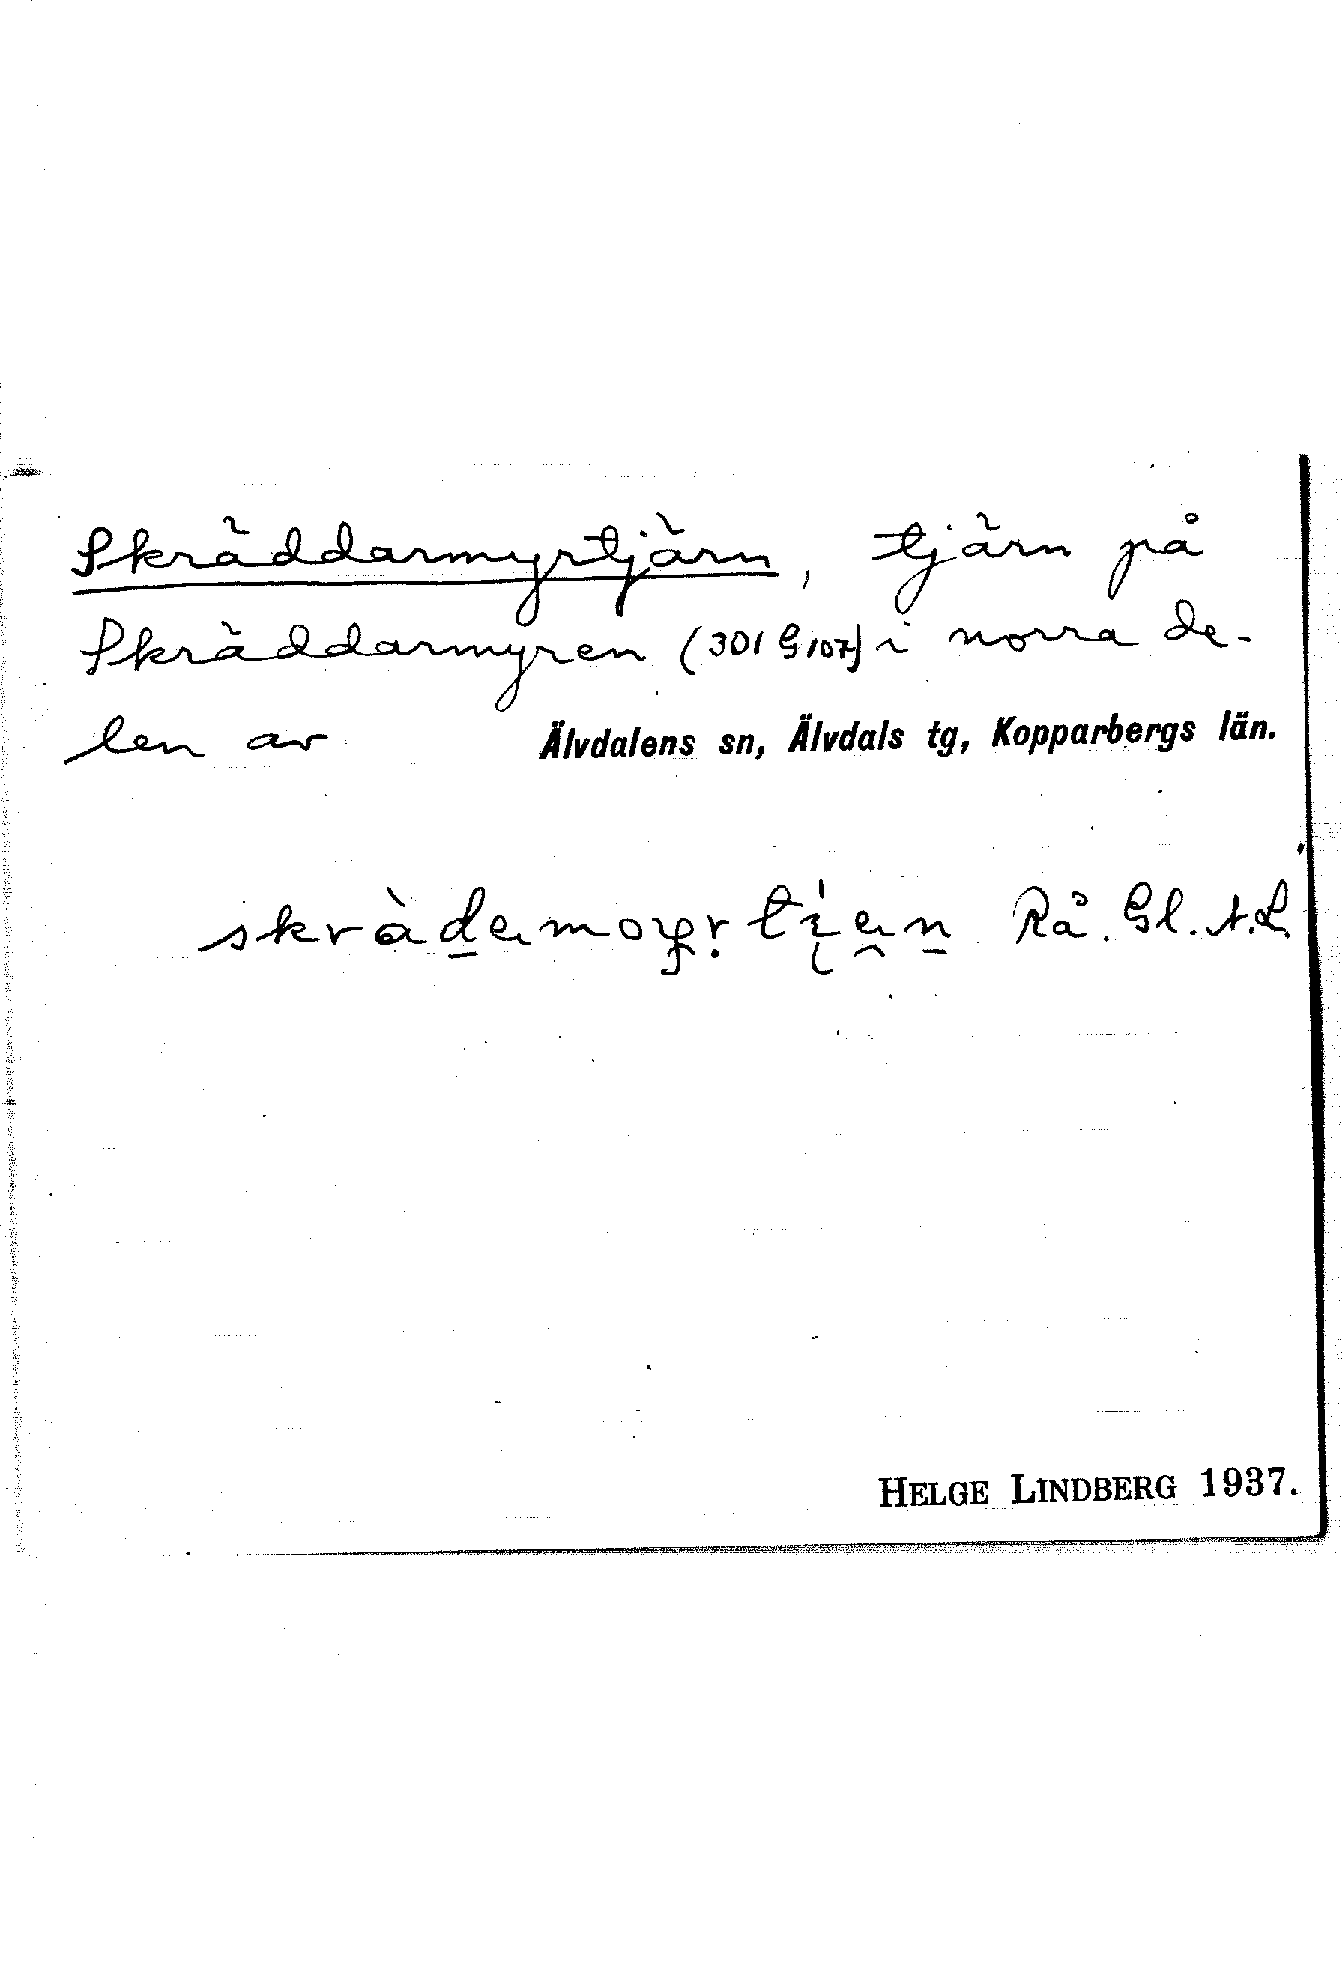 Skräddarmyrtjärn, tjärn på
Skräddarmyren (301 G 107) i norra de-
len av Älvdalens sn, Älvdals tg, Kopparbergs län.
Rå. Gl. A.L.
HELGE LINDBERG 1937.